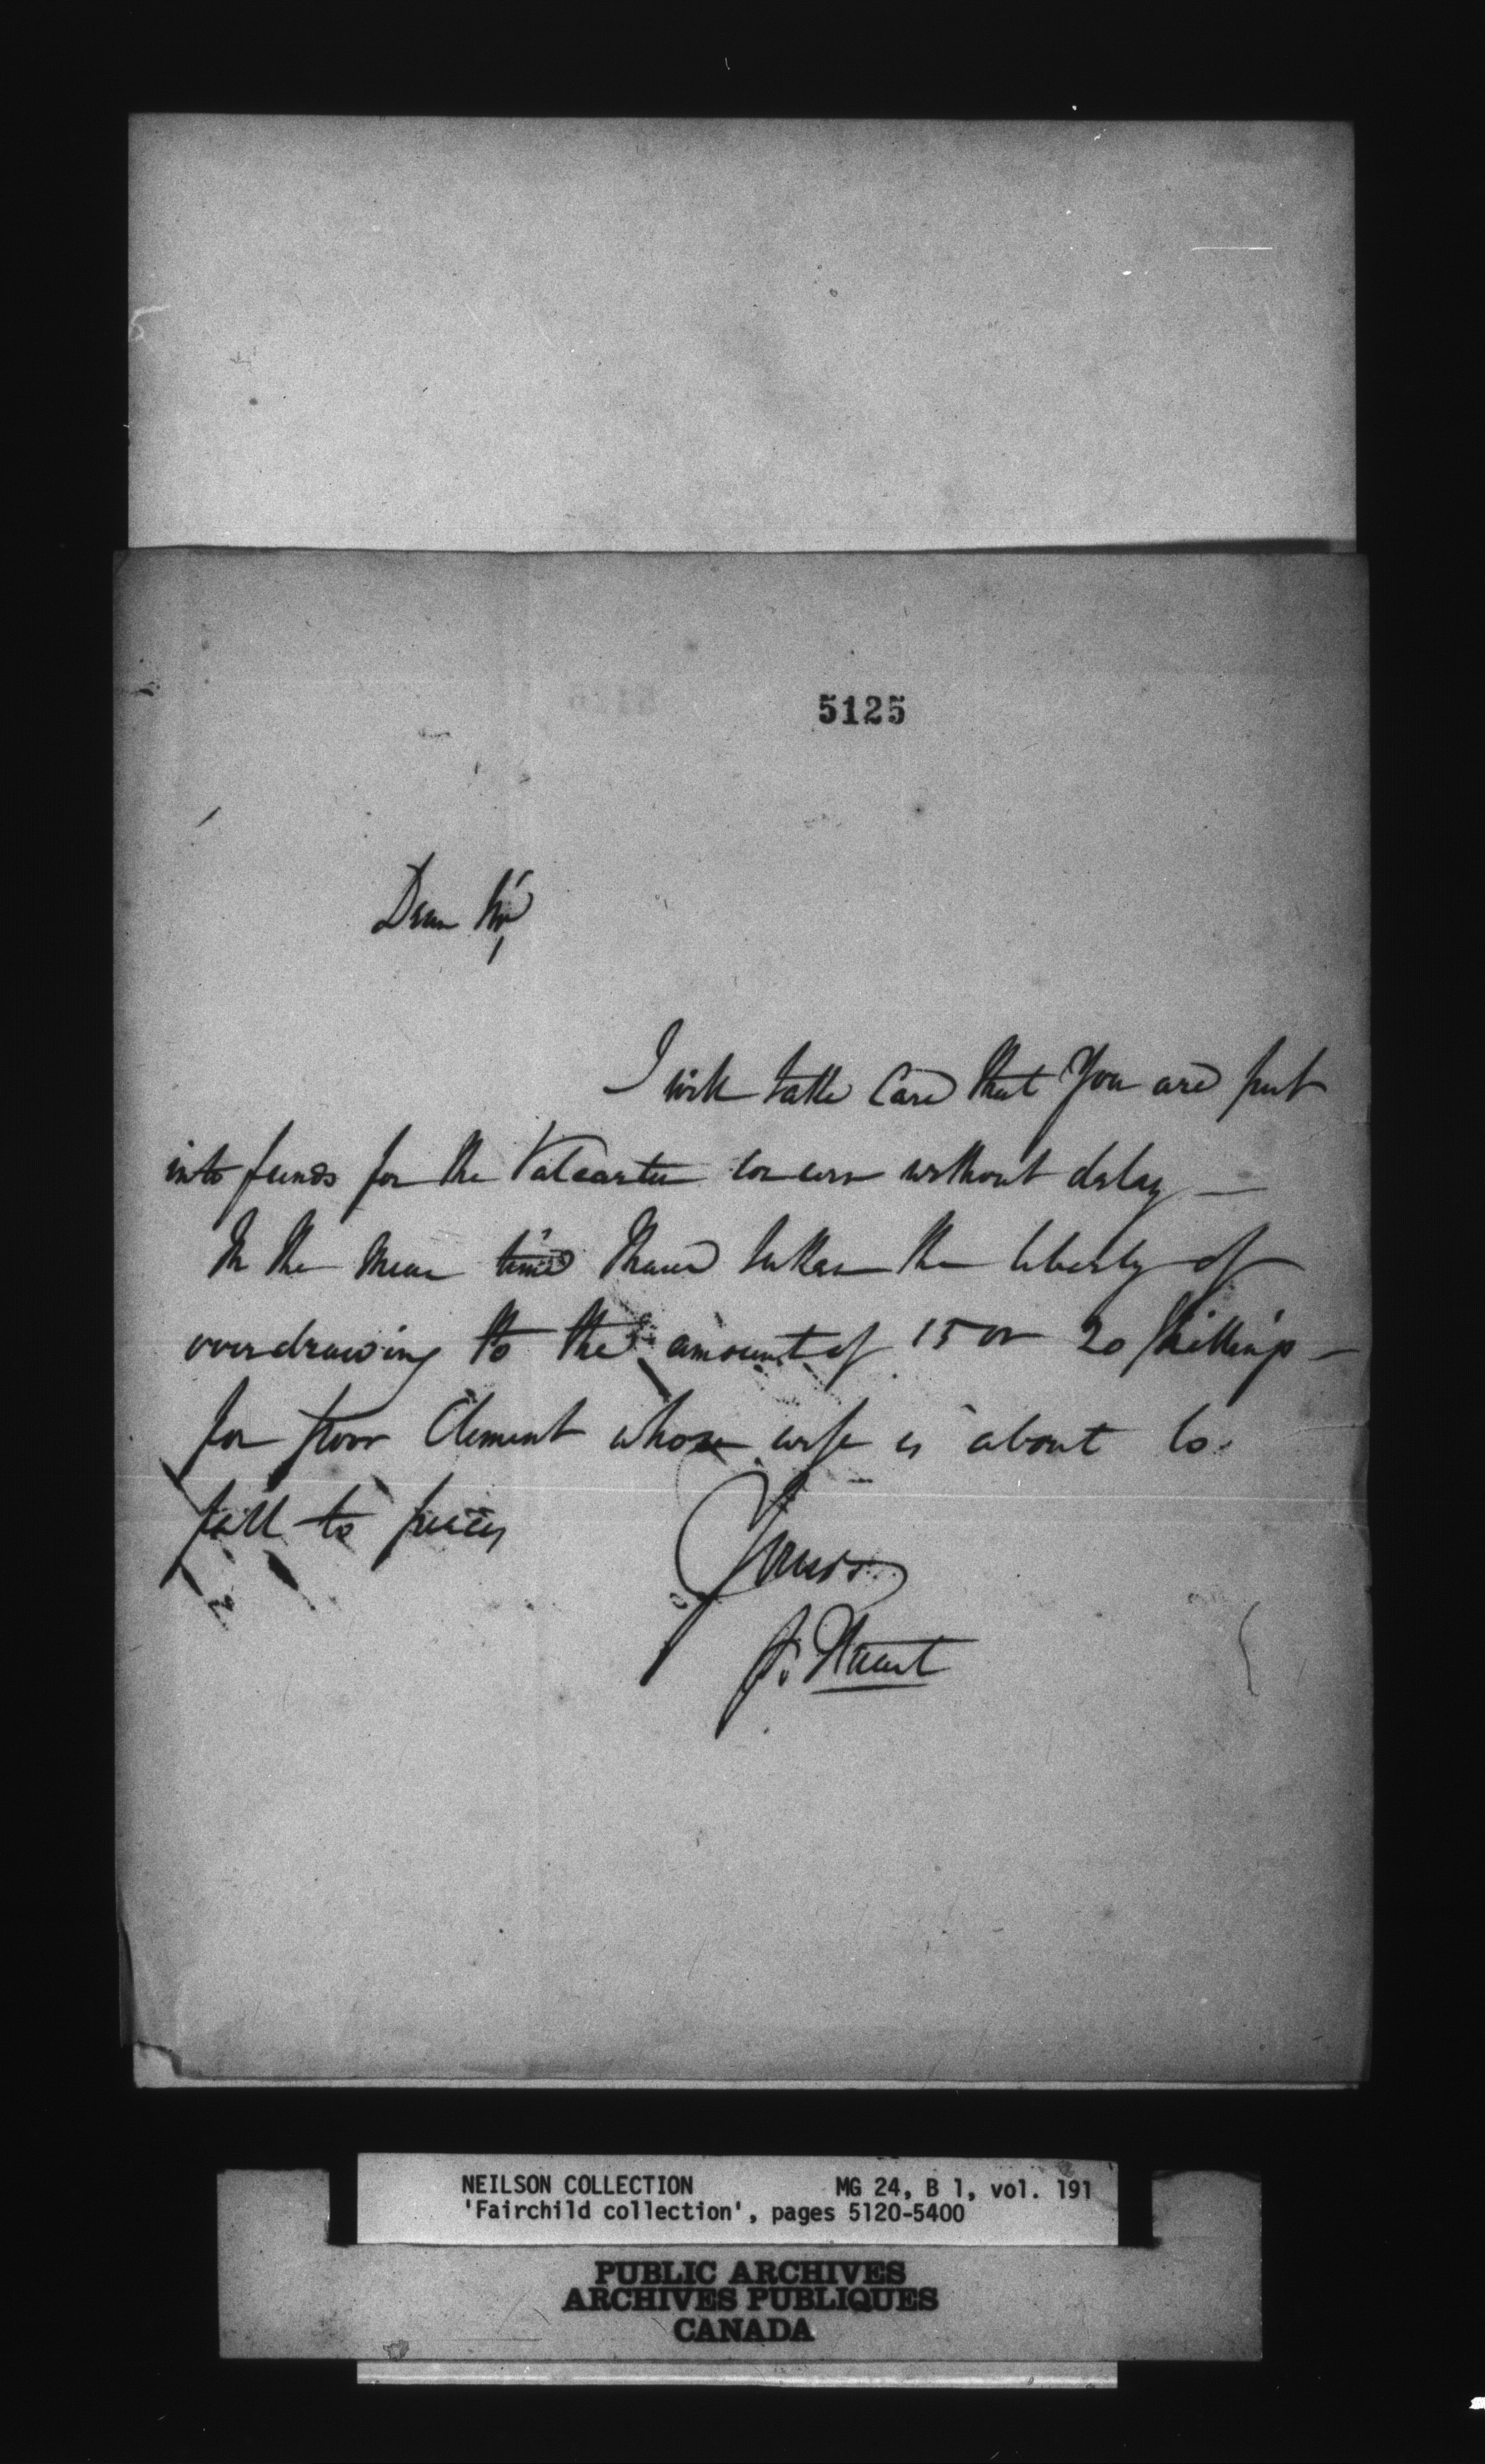 5125
Dear Sir,
I will take Care that You are put
into funds for the Valcartier concern without delay —
In the mean time I have taken the liberty of
overdrawing to the amount of 15 or 20 Shillings —
for poor Clement whose wife is about to
fall to pieces
Yours
A. Stuart
NEILSON COLLECTION MG 24, B 1, vol. 191
'Fairchild collection', pages 5120-5400
PUBLIC ARCHIVES
ARCHIVES PUBLIQUES
CANADA